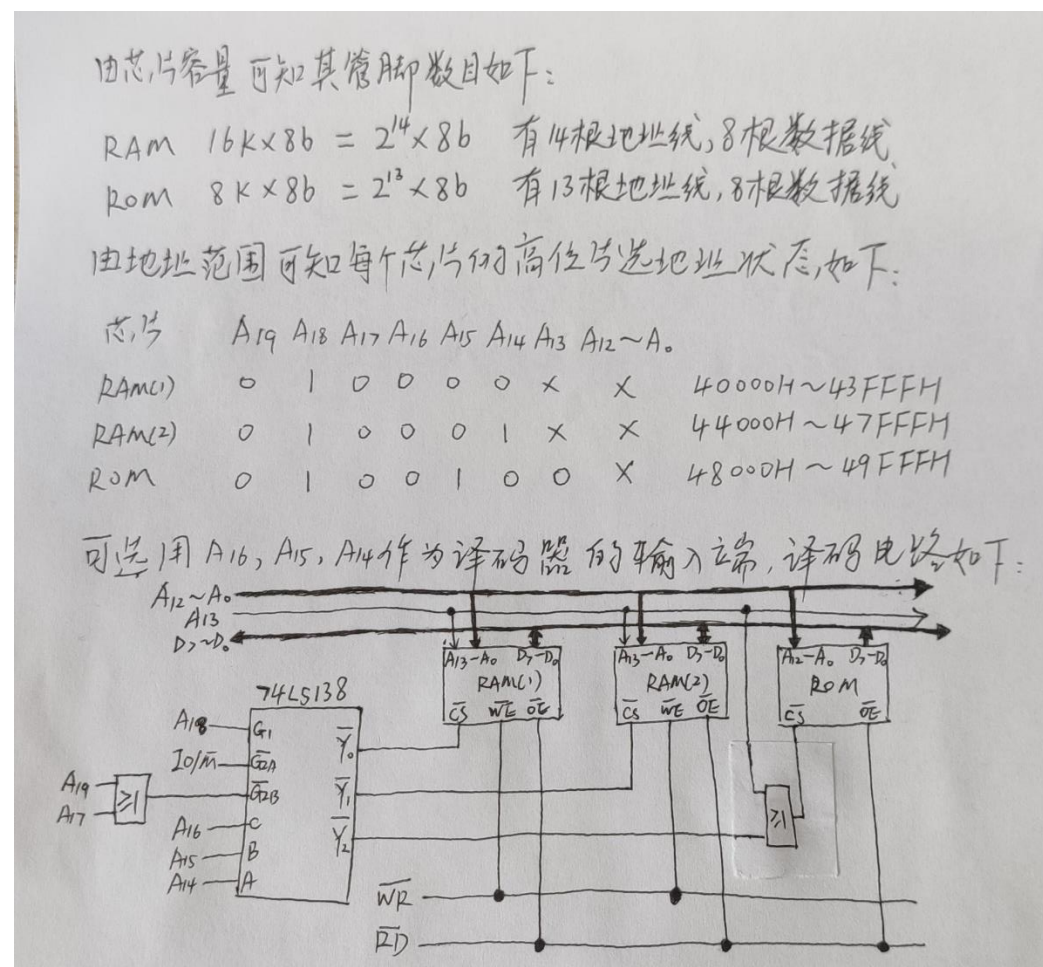 由芯片容量可知其管脚数目如下：
RAM 16K×8b = 2¹⁴×8b 有14根地址线,8根数据线
ROM 8K×8b = 2¹³×8b 有13根地址线,8根数据线
由地址范围可知每个芯片的高位片选地址状态,如下：
芯片 A19 A18 A17 A16 A15 A14 A13 A12~A0
RAM(1) 0 1 0 0 0 0 × × 40000H~43FFFH
RAM(2) 0 1 0 0 0 1 × × 44000H~47FFFH
ROM 0 1 0 0 1 0 0 × 48000H~49FFFH
可选用A16,A15,A14作为译码器的输入端,译码电路如下：
A12~A0
A13
D7~D0
A13-A0 D7-D0
RAM(1)
C̅S̅ W̅E̅ O̅E̅
A13-A0 D7-D0
RAM(2)
C̅S̅ W̅E̅ O̅E̅
A12-A0 D7-D0
ROM
C̅S̅ O̅E̅
74LS138
A18 G1 Y̅0
IO/M̅ G̅2A
A19
A17
≥1
G̅2B Y̅1
A16 C
A15 B Y̅2
A14 A
≥1
W̅R̅
R̅D̅